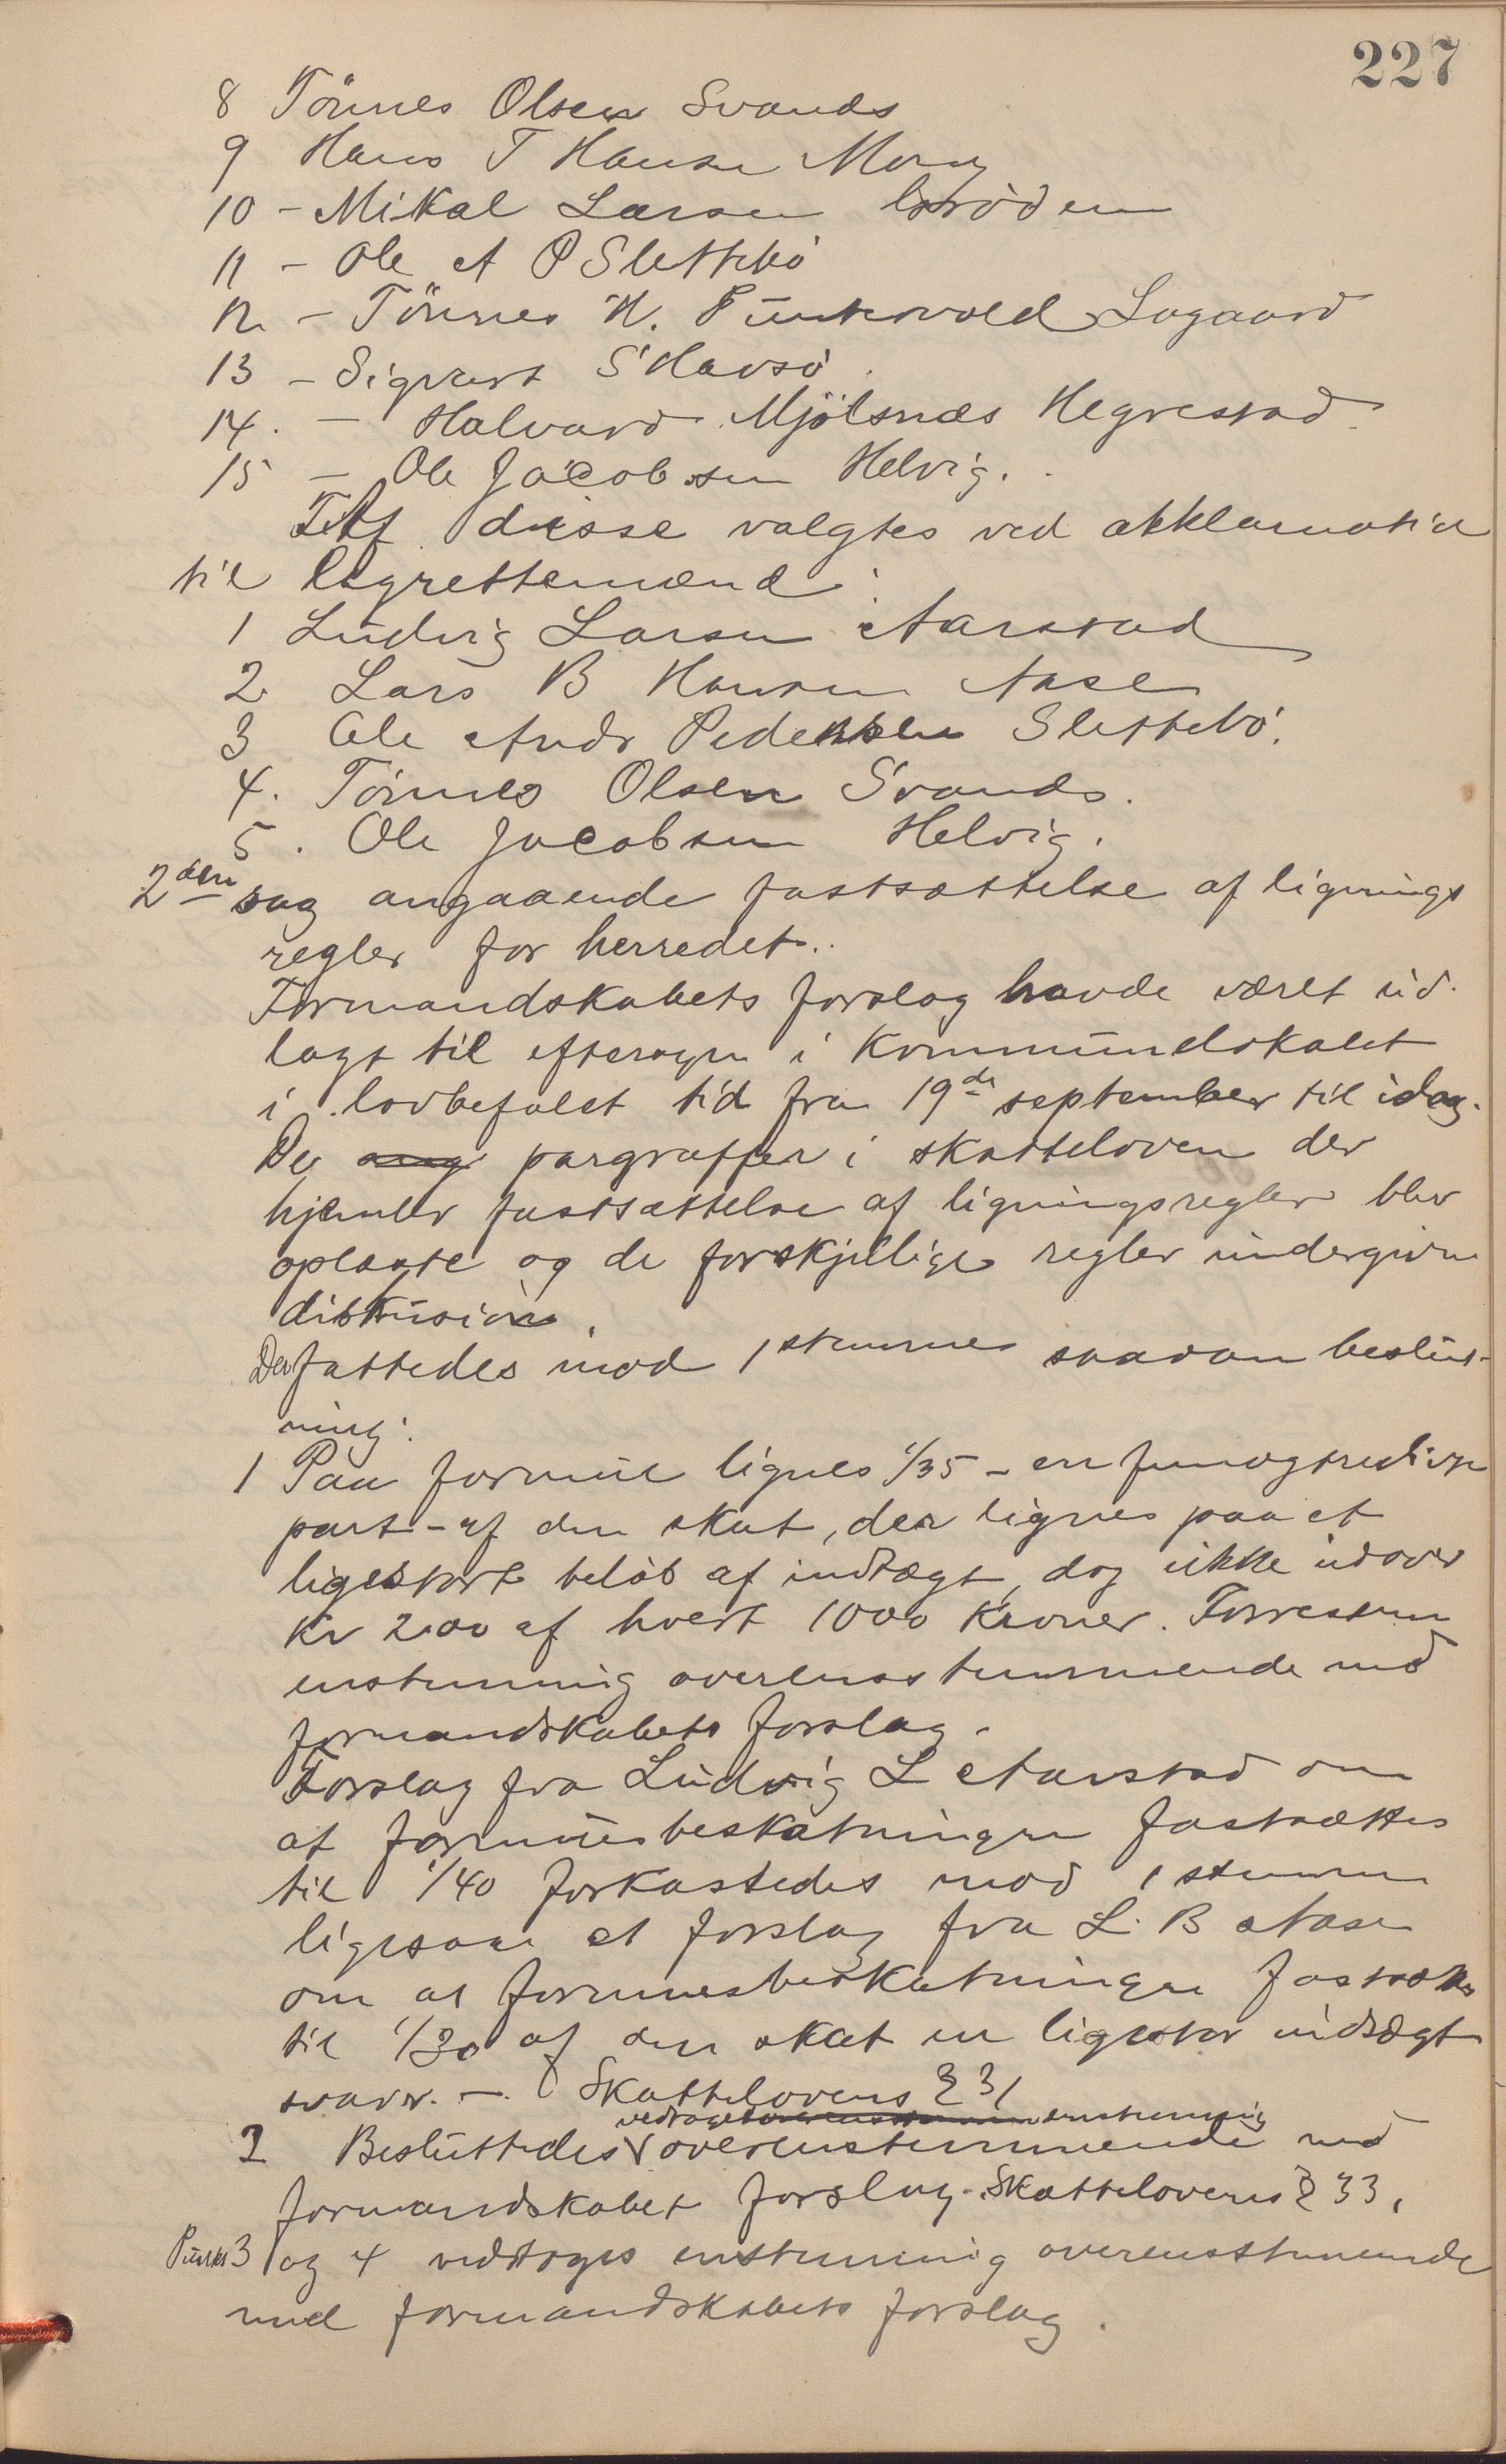 227
8 Tönnes Olsen Svands
9 Hans T Hansen Mong
10 - Mikal Larsen
11 - Ole A P Slettebö
12 - Tönnes H. Puntervold Lagaard
13 - Sigvart S Havsö.
14. - Halvard Mjölsnæs Hegrestad.
15 - Ole Jacobsen Helvig.
Af disse valgtes ved akklamation
til lagrettemænd:
1 Ludvig Larsen Aarstad
2 Lars B Hansen Aase
3 Ole Andr Pedersen Slettebö.
4. Tönnes Olsen Svands.
5. Ole Jacobsen Helvig.
2den sag angaaende fastsættelse af lignings
regler for herredet.
Formandskabets forslag havde været ud-
lagt til eftersyn i Kommunelokalet
i lovbefalet tid fra 19de september til idag.
De ang pargraffer i skatteloven der
hjemler fastsættelse af ligningsregler blev
oplæste og de forskjellige regler undergivne
diskusion.
Der fattedes mod 1 stemme saadan beslut-
ning:
1 Paa formue lignes 1/35 - en femogtredive
part - af den skat, der lignes paa et
ligestort beløb af indtægt, dog ikke udover
Kr 2.00 af hvert 1000 Kroner. Forresten
enstemmig overensstemmende med
formandskabets forslag.
Forslag fra Ludvig L Aarstad om
at formuesbeskatningen fastsættes
til 1/40 forkastedes mod 1 stemme
ligesaa et forslag fra L. B Aase
om at formuesbeskatningen fastsættes
til 1/30 af den skat en ligestor indtægt
svarer. - Skattelovens § 31
vedtaget overensstemmen enstemmig
2 Besluttedes overenstemmende med
formandskabet forslag. Skattelovens § 33,
Punkt 3 og 4 vedtoges enstemmig overensstemmende
med formandskabets forslag.